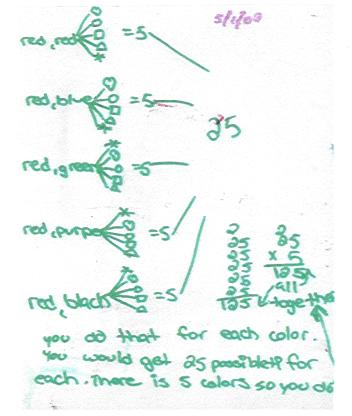 5/1/00
red, red =5
red, blue =5
25
red, green =5
red, purpe =5
red, black =5
2
25
25
25
25
25
125
25
x 5
125
all
together
you do that for each color.
You would get 25 possibleti for
each. There is 5 colors so you do